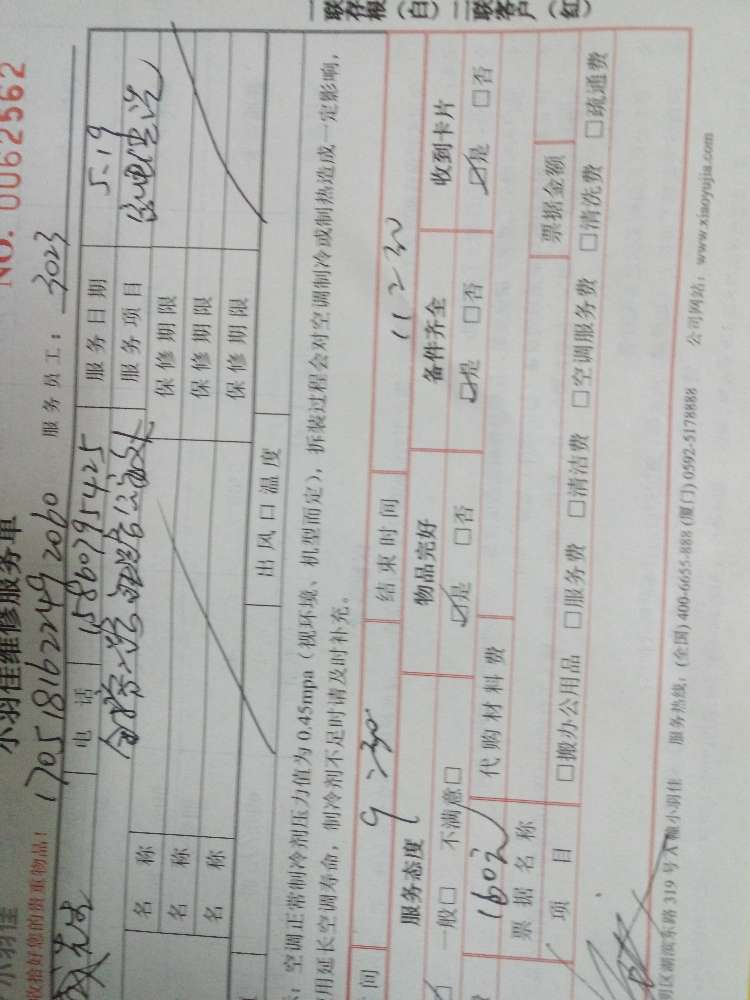 小羽佳
小羽佳维修服务单
NO. 0062562
收拾好您的贵重物品！
170518162249 2060
服务员工：3023
电话 15860795425 服务日期 5.19
服务项目
名称 保修期限
名称 保修期限
名称 保修期限
出风口温度
：空调正常制冷剂压力值为0.45mpa（视环境、机型而定），拆装过程会对空调制冷或制热造成一定影响，
用延长空调寿命，制冷剂不足时请及时补充。
间 9:30 结束时间 11:30
服务态度 物品完好 备件齐全 收到卡片
一般□ 不满意□ ☑是 □否 ☑是 □否 ☑是 □否
费 160元 代购材料费
票据名称 票据金额
项目 □搬办公用品 □服务费 □清洁费 □空调服务费 □清洗费 □疏通费
明区湖滨东路319号A幢小羽佳 服务热线：(全国) 400-6655-888 (厦门) 0592-5178888 公司网站：www.xiaoyujia.com
一联存根（白）二联客户（红）